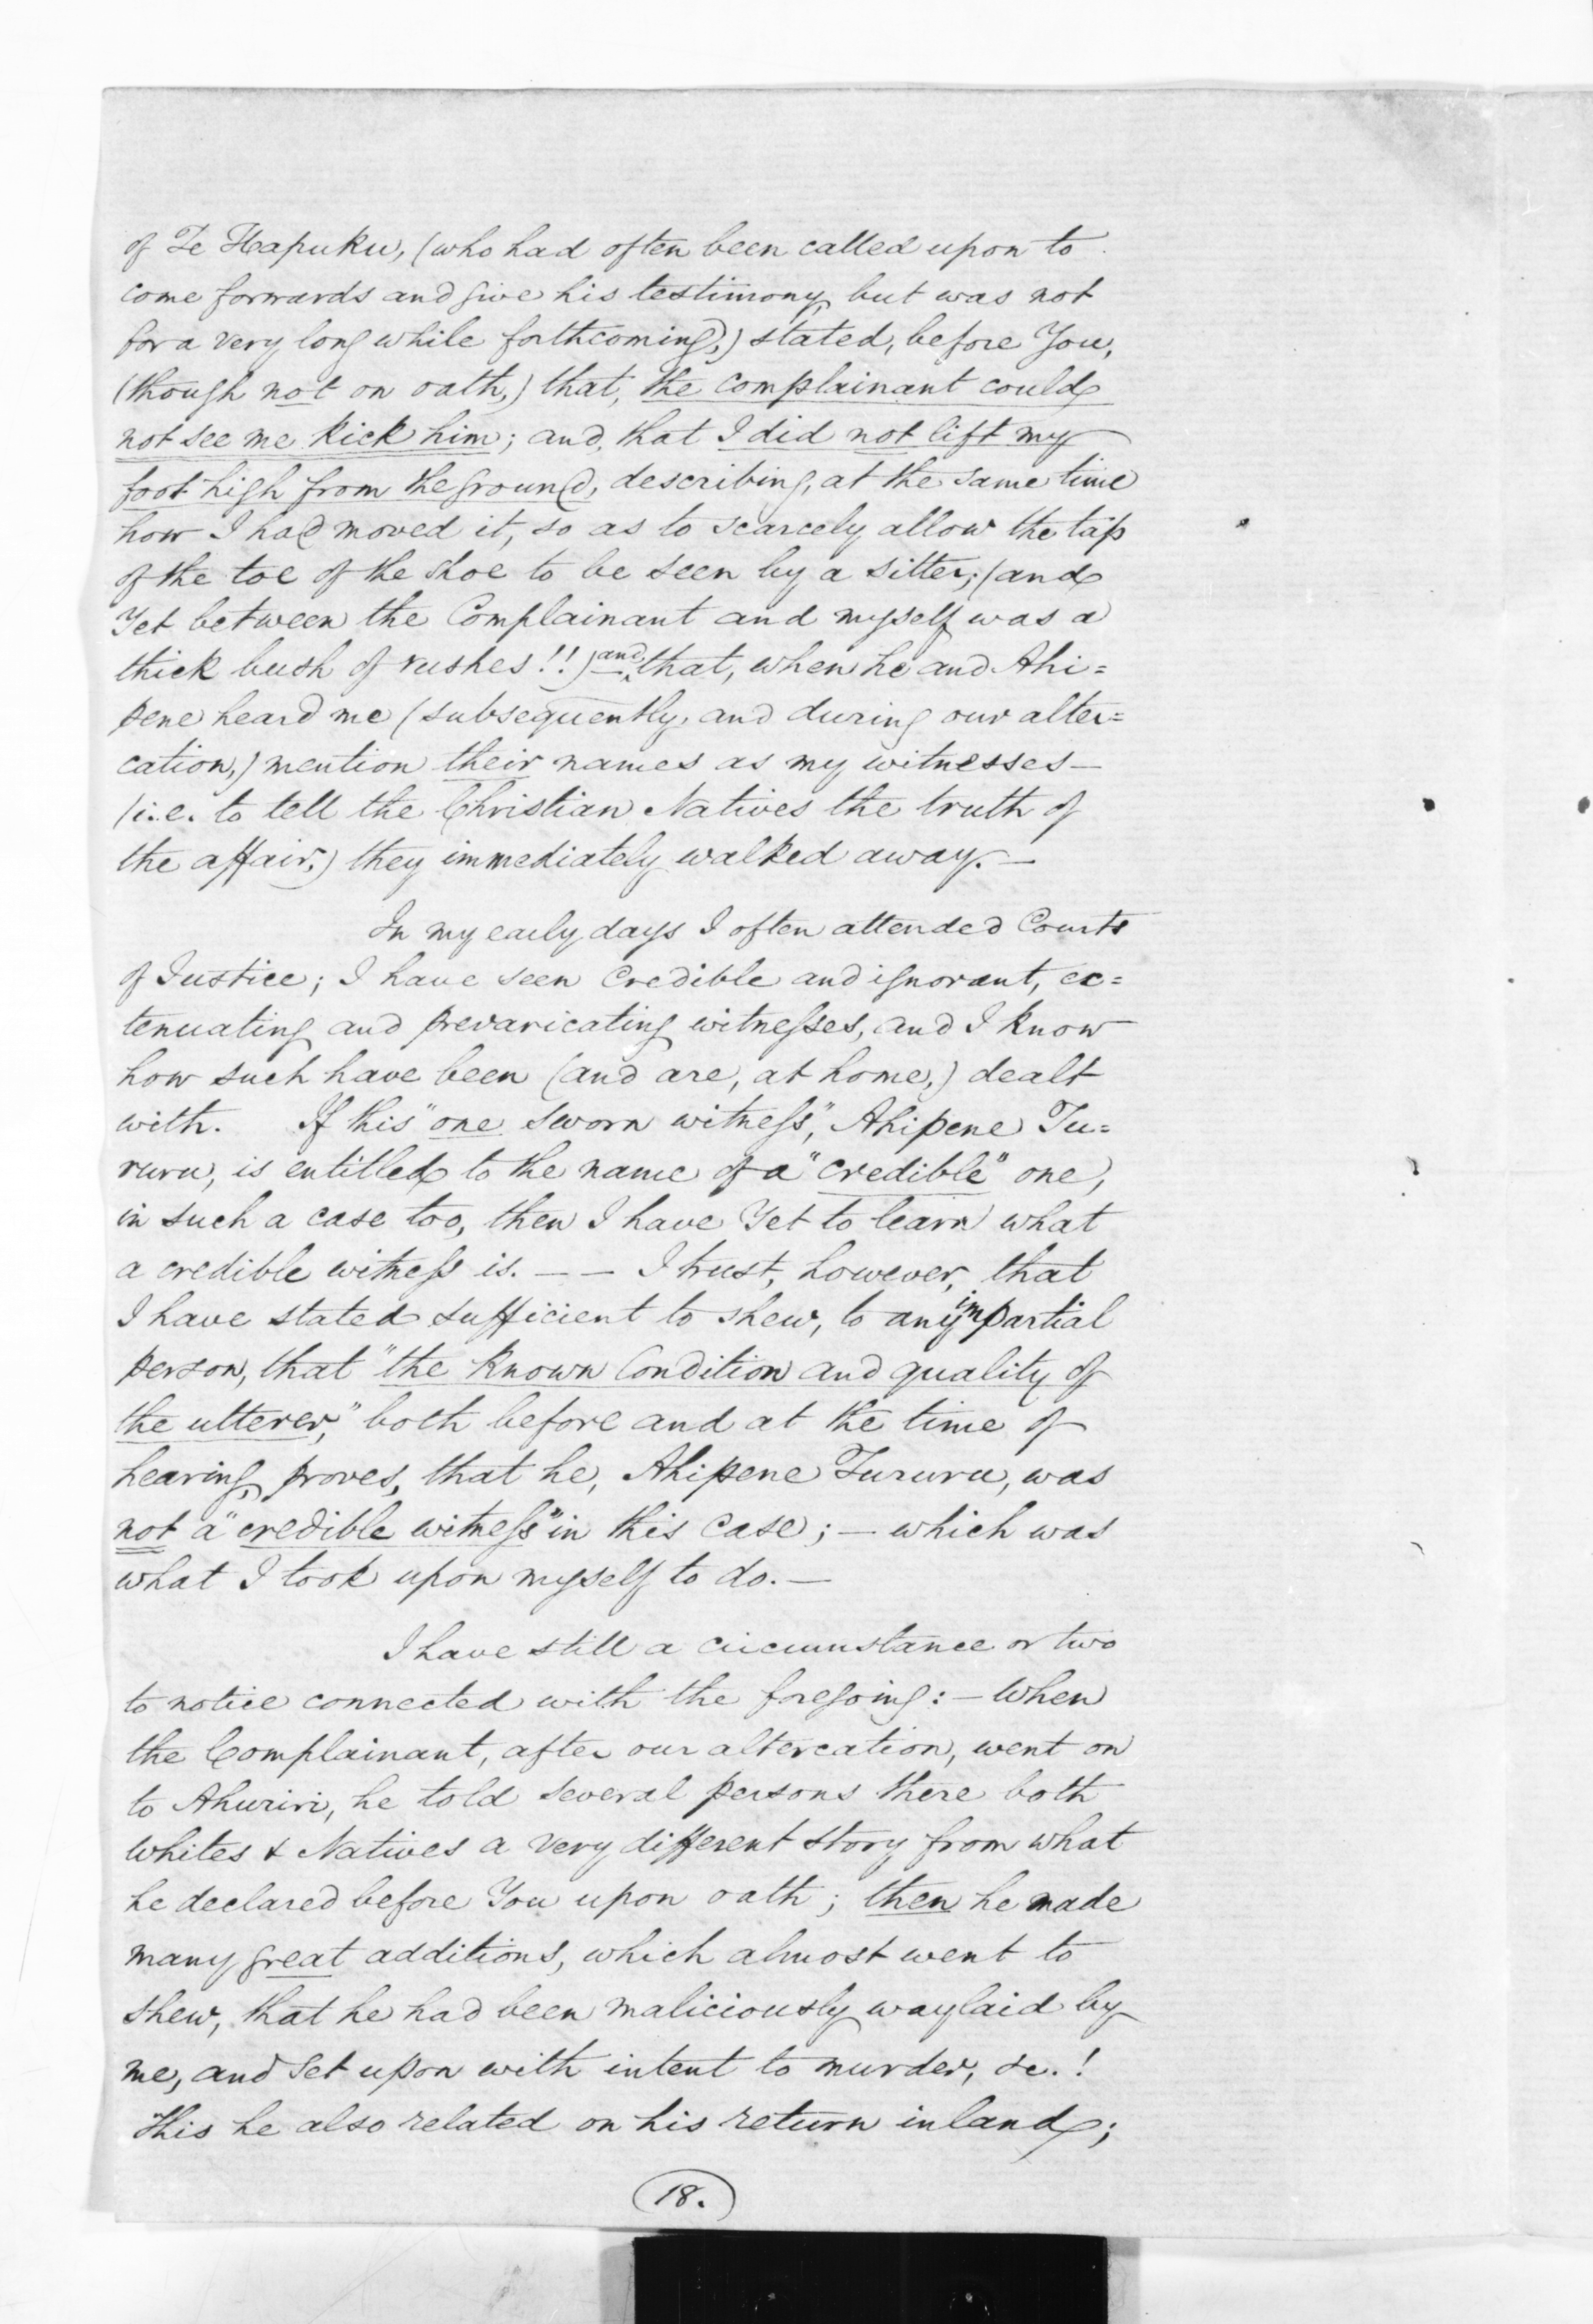 of Te Hapuku, (who had often been called upon to
come forwards and give his testimony, but was not
for a very long while forthcoming,) stated, before You,
(though not on oath,) that, the complainant could
not see me kick him; and, that I did not lift my
foot high from the ground, describing, at the same time
how I had moved it, so as to scarcely allow the tip
of the toe of the shoe to be seen by a sitter; (and
Yet between the Complainant and myself was a
thick bush of rushes!!) — and, that, when he and Ahi=
pene heard me (subsequently, and during our alter=
cation,) mention their names as my witnesses —
(i.e. to tell the Christian Natives the truth of
the affair,) they immediately walked away. —
In my early days I often attended Courts
of Justice; I have seen credible and ignorant, ex=
tenuating and prevaricating witnesses, and I know
how such have been (and are, at home,) dealt
with. If this "one sworn witness", Ahipene Tu=
ruru, is entitled to the name of a "credible" one,
in such a case too, then I have Yet to learn what
a credible witness is. — — I trust, however, that
I have stated sufficient to shew, to any impartial
person, that "the known Condition and quality of
the utterer," both before and at the time of
hearing, proves, that he, Ahipene Tururu, was
not a "credible witness" in this case; — which was
what I took upon myself to do. —
I have still a circumstance or two
to notice connected with the foregoing: — When
the Complainant, after our altercation, went on
to Ahuriri, he told several persons there both
Whites & Natives a very different story from what
he declared before You upon oath; then he made
many great additions, which almost went to
shew, that he had been maliciously waylaid by
me, and set upon with intent to murder, &c.!
This he also related on his return inland;
18.